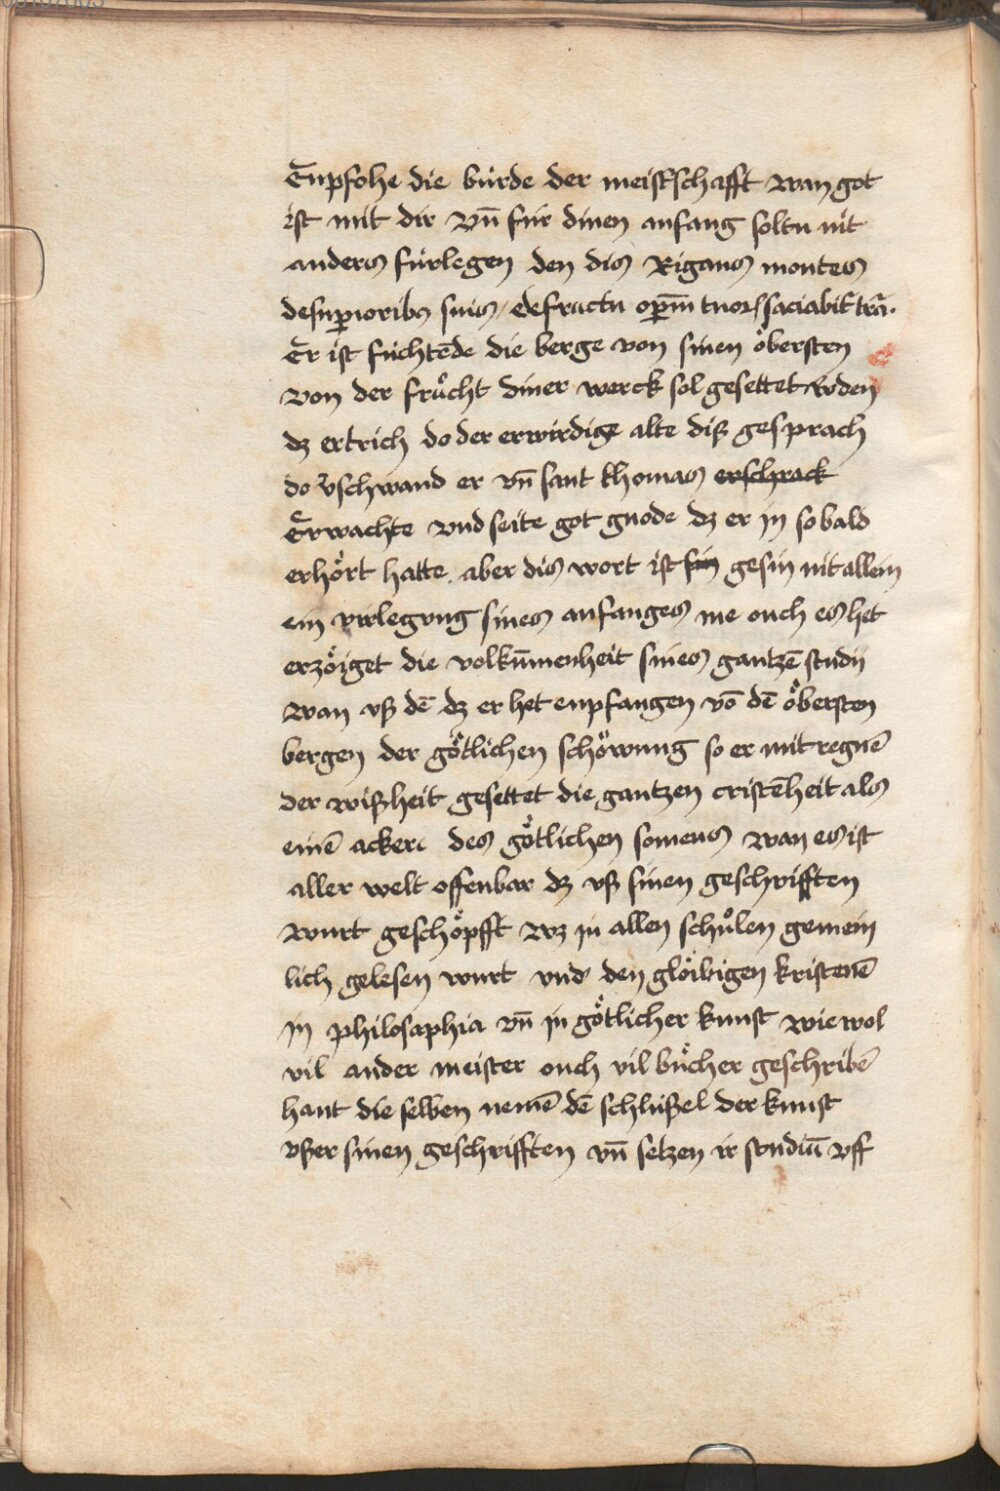 Enpfohe die bürde der meistschafft wan got
ist mit dir vn̄ für dinen anfang soltu nit
anders fürlegen den dis Rigans montes
desuꝑioribꝰ suis / defructu oꝑm̄ tuoꝝ saciabit᷑ trā.
Er ist füchtēde die berge von sinen öbersten
von der frůcht diner werck sol gesettet w᷑den
dz ertrich do der erwirdige alte diß gesprach
do v᷑schwand er vn̄ sant thomas erschrack
Erwachte vnd seite got gnode dz er jn so bald
erhört hatte. aber dis wort ist sin gesin nit allein
ein vrrlegung sines anfanges me ouch es het
erzöiget die volkūmenheit sines gantzē studij
wan vß dē dz er het enpfangen vō dē öbersten
bergen der götlichen schöwung so er mit regnē
der wißheit gesettet die gantzen cristēheit als
einē acker des götlichen somens wan es ist
aller welt offenbar dz vß sinen geschrifften
wurt geschöpfft wz jn allen schůlen gemein
lich gelesen wurt vnd den glöibigen kristenē
jn philosaphia vn̄ jn götlicher kunst wie wol
vil ander meister ouch vil bücher geschribē
hant die selben nemē dē schlüßel der kunst
vßer sinen geschrifften vn̄ setzen ir studiū vff